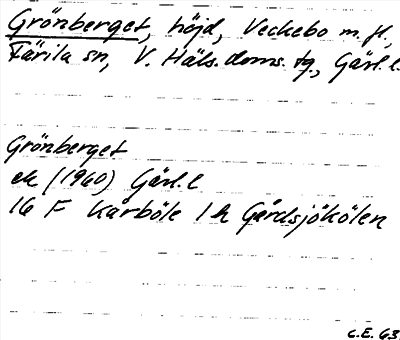 Grönberget, höjd, Veckebo m.fl.,
Färila sn, V. Häls. doms. tg., Gävl. l.
Grönberget
ek (1960) Gävl. l
16 F Kårböle 1 h Gårdsjökölen
C.E. 63.